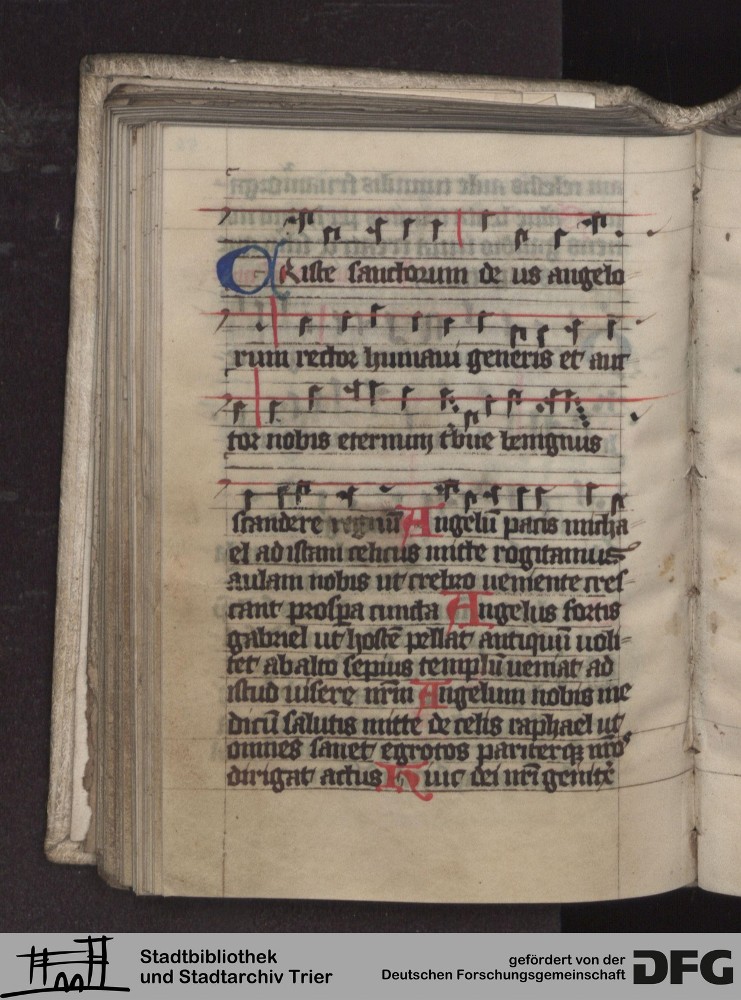 Criste sanctorum de us angelo
rum rector humani generis et auc
tor nobis eternum tbue benignus
scandere regnū Angelū pacis micha
el ad istam celitus mitte rogitamus
aulam nobis ut crebro ueniente cres
cant prospa cuncta Angelus fortis
gabriel ut hostē pellat antiquū uoli
tet ab alto sepius templū ueniat ad
istud uisere nrm Angelum nobis me
dicū salutis mitte de celis raphael ut
omnes sanet egrotos pariterqꝫ nros
dirigat actus Huic dei nri genitͥx
Stadtbibliothek
und Stadtarchiv Trier
gefördert von der
Deutschen Forschungsgemeinschaft
DFG